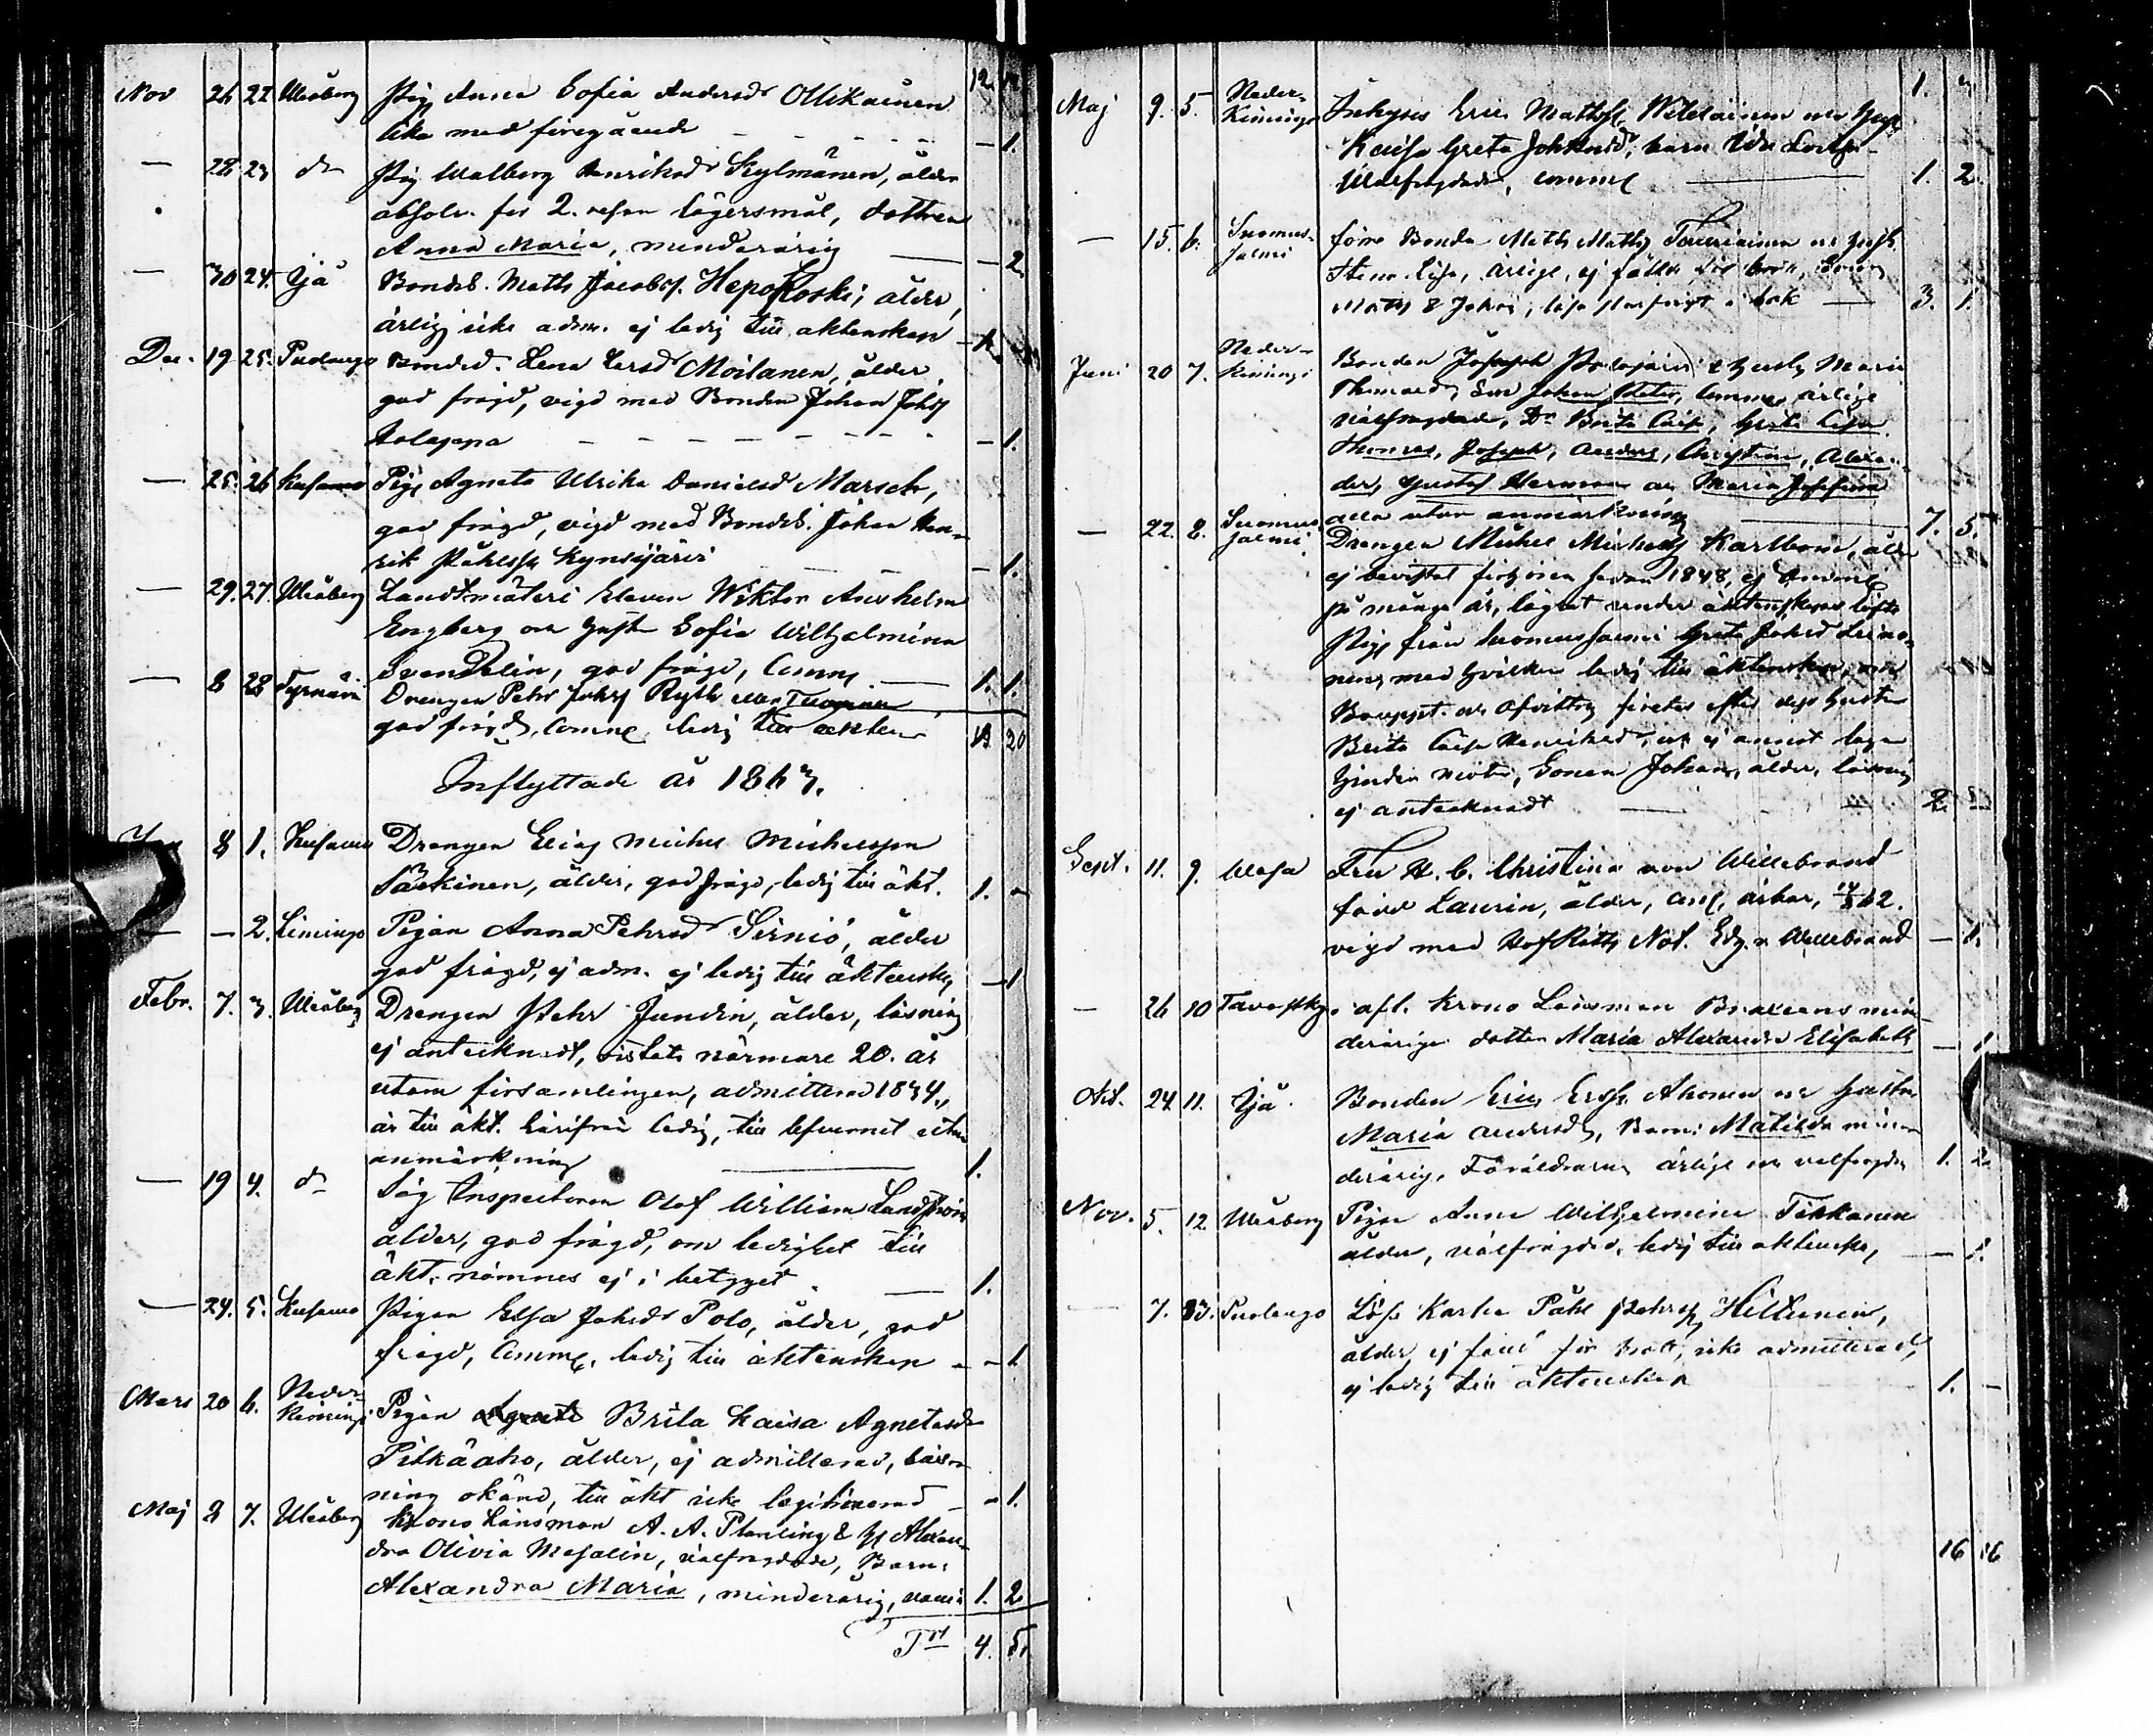 Nov 26 22 Uleåborg Pig Anna Sofia Andersdr Ollikainen
lika med föregående - 1.
— 28 23 do Pig Walborg Henriksdr Kylmänen, ålder
absolv. för 2. resan lägersmål, dottren
Anna Maria, minderårig — 2.
— 30 24. Ijå Bondes. Matts Jacobss. Hepokoski, ålder,
ärlig icke adm. ej ledig till äktenskap
Dec. 19 25. Pudasjo Bonded. Lena Larsd Moilanen, ålder,
god frägd, vigd med Bonden Johan Johss
- 1.
— 25. 26 Kusamo Pig Agneta Ulrika Danielsd Marsch,
god frägd, vigd med Bondes. Johan Hen-
rik Påhlsson Kynsijärvi - 1.
— 29. 27. Uleåborg Landtmäteri Eleven Wiktor Anshelm
Engberg och hustr Sofia Wilhelmina
Svendelin, god frägd, Comm. 1. 1.
— 8 28 Tyrnävä Drengen Petr Johss Ryth eller Tuominen
god frägd, Comm. ledig till äkten 20
Inflyttade år 1863.
8 1. Kusamo Drengen Elias Michel Michelsson
Särkinen, ålder, god frägd, ledig till äkt. 1. -
— — 2. Limingo Pigan Anna Pehrsd Sirniö, ålder
god frägd, ej adm. ej ledig till äktensk, - 1
Febr. 7. 3. Uleåborg Drengen Pehr Jundin, ålder, läsning
ej antecknadt, vistats närmare 20. år
utom församlingen, admitterad 1834.,
är till äkt. härifrån ledig, till lefvernet utan
anmärkning 1.
— 19 4. do Såg Inspectoren Olof William Landström
ålder, god frägd, om ledighet till
äkt. nämnes ej i betyget 1.
— 24. 5. Kusamo Pigan Elsa Johsdr Polo, ålder, god
frägd, Comm, ledig till äktenskap - - 1
Mars 20 6. Neder Kiminge Pigan Brita Kaisa Agnetasdr
Pitkäaho, ålder, ej admitterad, läs-
ning okänd, till äkt icke legitimerad - - 1.
Maj 2 7. Uleåborg Krono Länsman A. A. Planting & h. Alexan-
dra Olivia Mesalin, välfrägdade, Barn:
Alexandra Maria, minderårig, 1. 2
Trt 4. 5.
1.
Maj 9. 5. Neder Kiminge Inhyses Eric Mattss. och h.
Kaisa Greta Johansd, barn Ida
välfrägdade, comm 1. 2.
— 15. 6. Suomus-salmi förre Bonden Matts Matts. Tauriainen och hustr.
Stina Lisa, ärlige, ej fälde för brott, Söner
Matts & Johan, läsa i bok — 3. 1.
Juni 20 7. Neder-Kiminge Bonden Joseph & hustr Maria
Thomasd, Son Johan Peter, Comm. ärlige
välfrägdade, Dr Brita Caisa, Greta Lisa
Thomas, Joseph, Anders, Christina, Alexan-
der, Gustaf Herman och Maria Josefina
alla utan anmärkning 7. 5.
— 22. 8. Suomus salmi Drengen Michel Michelss Karlbom, ålder
ej bevistat förhören sedan 1848, ej Comm
på många år, lägrat under äktenskaps löfte
Pig från Suomussalmi Greta Johsd Leino-
nen, med hvilken ledig till äktenskap, när
Bouppt. och Afvittrg företes efter dess hustr
Brita Caisa Henriksd, och ej annat laga
hinder möter, Sonen Johan, ålder, läsning
ej antecknadt 2.
Sept. 11. 9. Wasa Fru H. C. Christina von Willebrand
född Laurin, ålder, Com, ärbar, 62.
vigd med HofRätts Not. Edg. v Willebrand - 1.
— 26 10 Tavastkg. afl. Krono Länsman Braxens min-
derårige dotter Maria Alexandra Elisabeth - 1
Oct. 24 11. Ijå Bonden Eric Erss. Ahonen och hustru
Maria Andersd, Barn: Matilda min-
derårig, Föräldrarne ärlige och välfrägd. 1. 2.
Nov. 5. 12 Uleåborg Pigan Anna Wilhelmina Tikkanen
ålder, välfrägdad, ledig till äktensk, - 1.
7. 13. Pudasjo Löse Karlen Påhl Pehrss. Hiltunen,
ålder ej fäld för brott, icke admitterad,
ej ledig till äktenskap 1. -
16 16